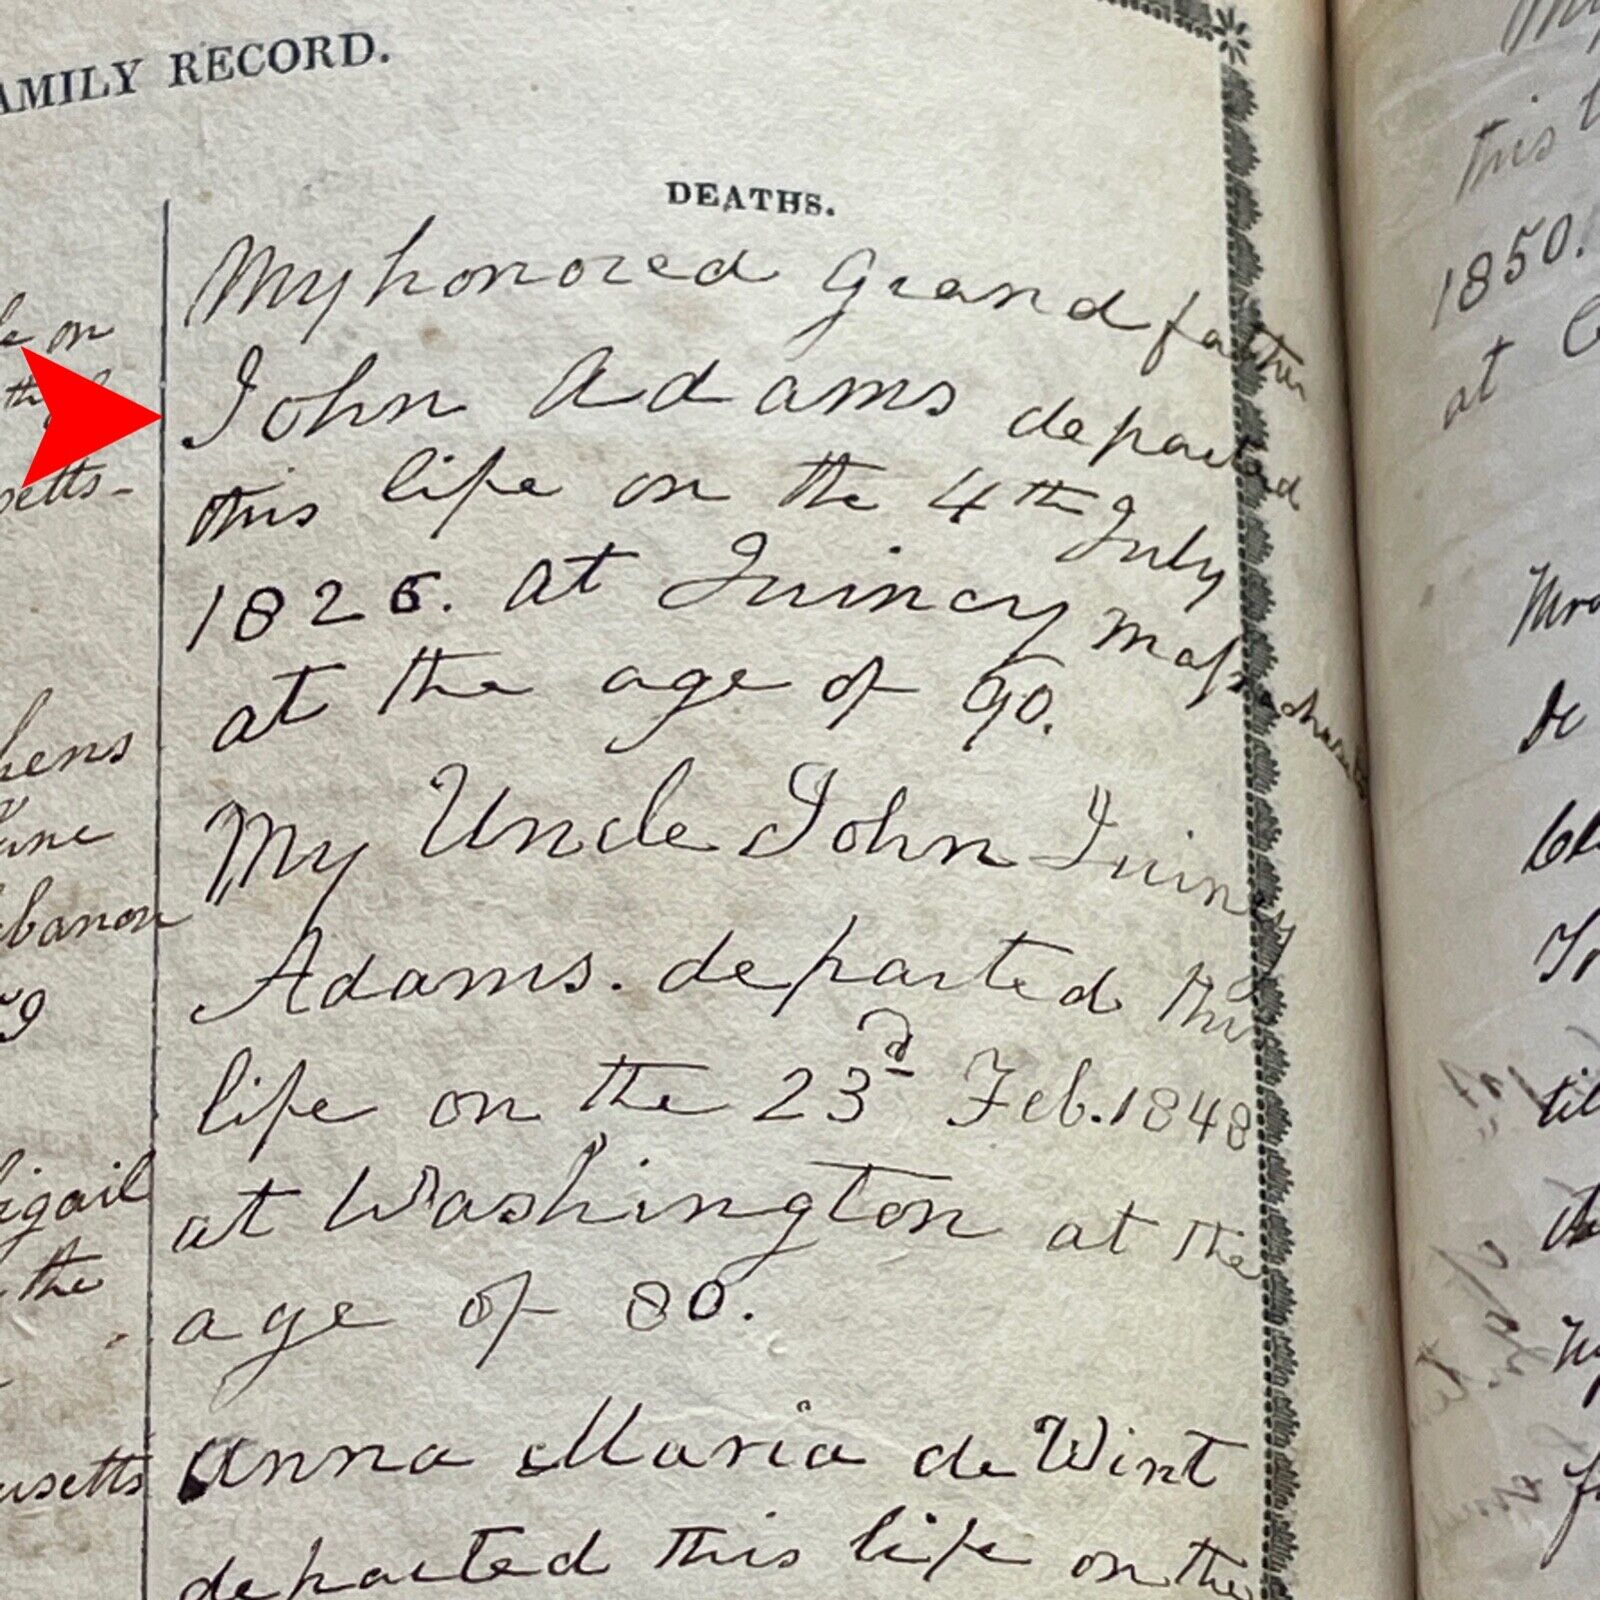 AMILY RECORD.
DEATHS.
My honored Grandfather
John Adams departed
this life on the 4th July
1826. at Quincy Massachusetts
at the age of 90.
My Uncle John Quincy
Adams. departed this
life on the 23d Feb. 1848
at Washington at the
age of 80.
Anna Maria de Wint
departed this life on the
on
setts-
hens
une
ebanon
9
igail
the
usetts
this
1850.
at
de